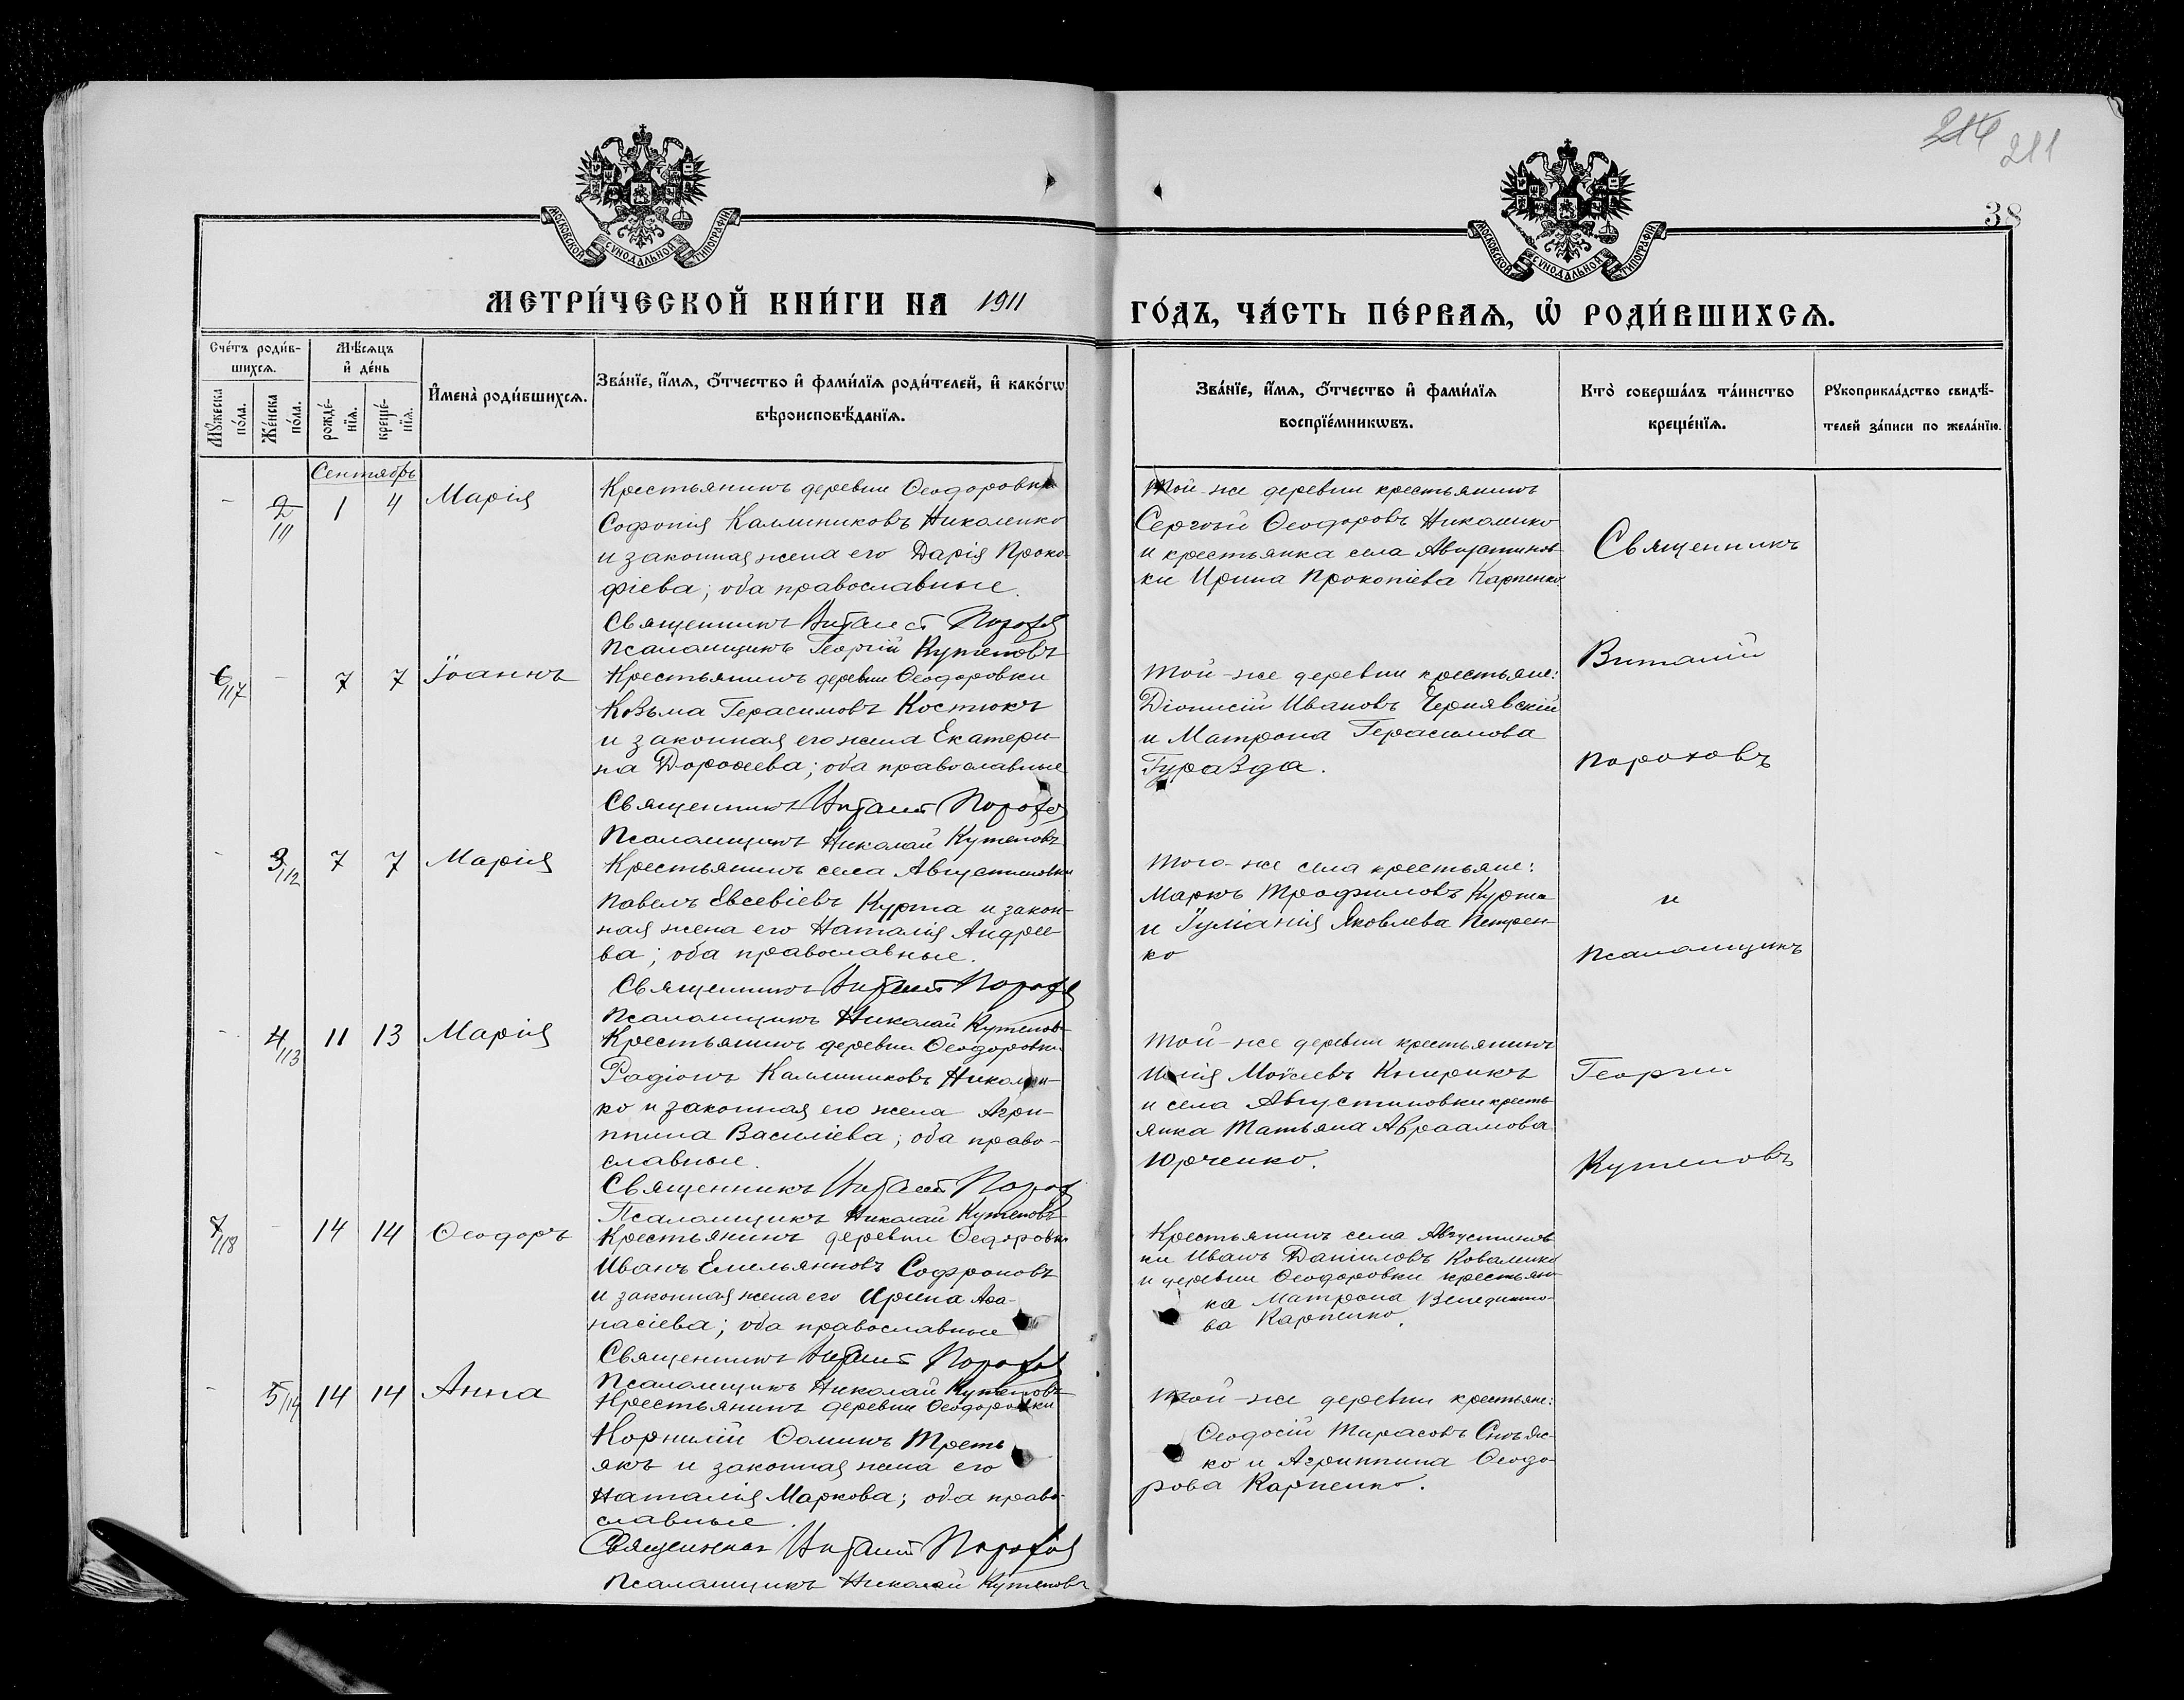 214 211
38
МОСКОВСКОЙ СУНОДАЛЬНОЙ ТИПОГРАФІИ
МОСКОВСКОЙ СУНОДАЛЬНОЙ ТИПОГРАФІИ
МЕТРИ́ЧЕСКОЙ КНИ́ГИ НА 1911
ГО́ДЪ, ЧА́СТЬ ПЕ́РВАѦ, Ѡ҆ РОДИ́ВШИХСѦ.
Сче́тъ роди́в-
шихсѧ.
Мꙋ́жеска по́ла.
Же́нска по́ла.
Мѣ́сѧцъ
и҆ де́нь
рожде́-
нїѧ.
креще́-
нїѧ.
И҆мена̀ роди́вшихсѧ.
Зва́нїе, и҆́мѧ, ѻ҆́тчество и҆ фами́лїѧ роди́телей, и҆ како́гѡ
вѣроисповѣ́данїѧ.
Зва́нїе, и҆́мѧ, ѻ҆́тчество и҆ фами́лїѧ
воспрїе́мникѡвъ.
Кто̀ соверша́лъ та́инство
креще́нїѧ.
Рꙋкоприкла́дство свидѣ́-
телей за́писи по жела́нїю.
Сентябрь
- 2/111 1 4 Марія
Крестьянинъ деревни Ѳеодоровки
Софонія Каллиниковъ Николенко
и законная жена его Дарія Проко-
фіева; оба православные.
Священникъ Виталій Порохов
Псаломщикъ Георгій Кутеповъ
Той-же деревни крестьянинъ
Сергѣй Ѳеодоровъ Николенко
и крестьянка села Августинов-
ки Ирина Прокопіева Карпенко
6/117 - 7 7 Іоаннъ
Крестьянинъ деревни Ѳеодоровки
Козьма Герасимовъ Костюкъ
и законная его жена Екатери-
на Дороѳеева; оба православные
Священникъ Виталій Порохов
Псаломщикъ Николай Кутеповъ
Той-же деревни крестьяне:
Діонисій Ивановъ Чернявскій
и Матрона Герасимова
Гуразда.
- 3/112 7 7 Марія
Крестьянинъ села Августиновки
Павелъ Евсевіевъ Курта и закон-
ная жена его Наталія Андрее-
ва; оба православные.
Священникъ Виталій Порохов
Псаломщикъ Николай Кутеповъ
Того-же села крестьяне:
Маркъ Трофимовъ Курта
и Іуліанія Яковлева Петрен-
ко
- 4/113 11 13 Марія
Крестьянинъ деревни Ѳеодоровки
Радіонъ Каллиниковъ Николен-
ко и законная его жена Агри-
ппина Василіева; оба право-
славные.
Священникъ Виталій Порохов
Псаломщикъ Николай Кутеповъ
Той-же деревни крестьянинъ
Илія Моѵсеевъ Кнырикъ
и села Августиновки кресть-
янка Татьяна Авраамова
Юрченко.
7/118 - 14 14 Ѳеодоръ
Крестьянинъ деревни Ѳедоровки
Иванъ Емельянновъ Софроновъ
и законная жена его Ирина Аѳа-
насіева; оба православные
Священникъ Виталій Порохов
Псаломщикъ Николай Кутеповъ
Крестьянинъ села Августинов-
ки Иванъ Даніиловъ Коваленко
и деревни Ѳеодоровки крестьян-
ка Матрона Венедикто-
ва Карпенко.
- 5/114 14 14 Анна
Крестьянинъ деревни Ѳеодоровки
Корнилій Ѳоминъ Треть-
якъ и законная жена его
Наталія Маркова; оба право-
славные.
Священникъ Виталій Порохов
Псаломщикъ Николай Кутеповъ
Той-же деревни крестьяне:
Ѳеодосій Тарасовъ
ко и Агриппина Ѳеодо-
рова Карпенко.
Священникъ
Виталій
Пороховъ
и
псаломщикъ
Георгій
Кутеповъ